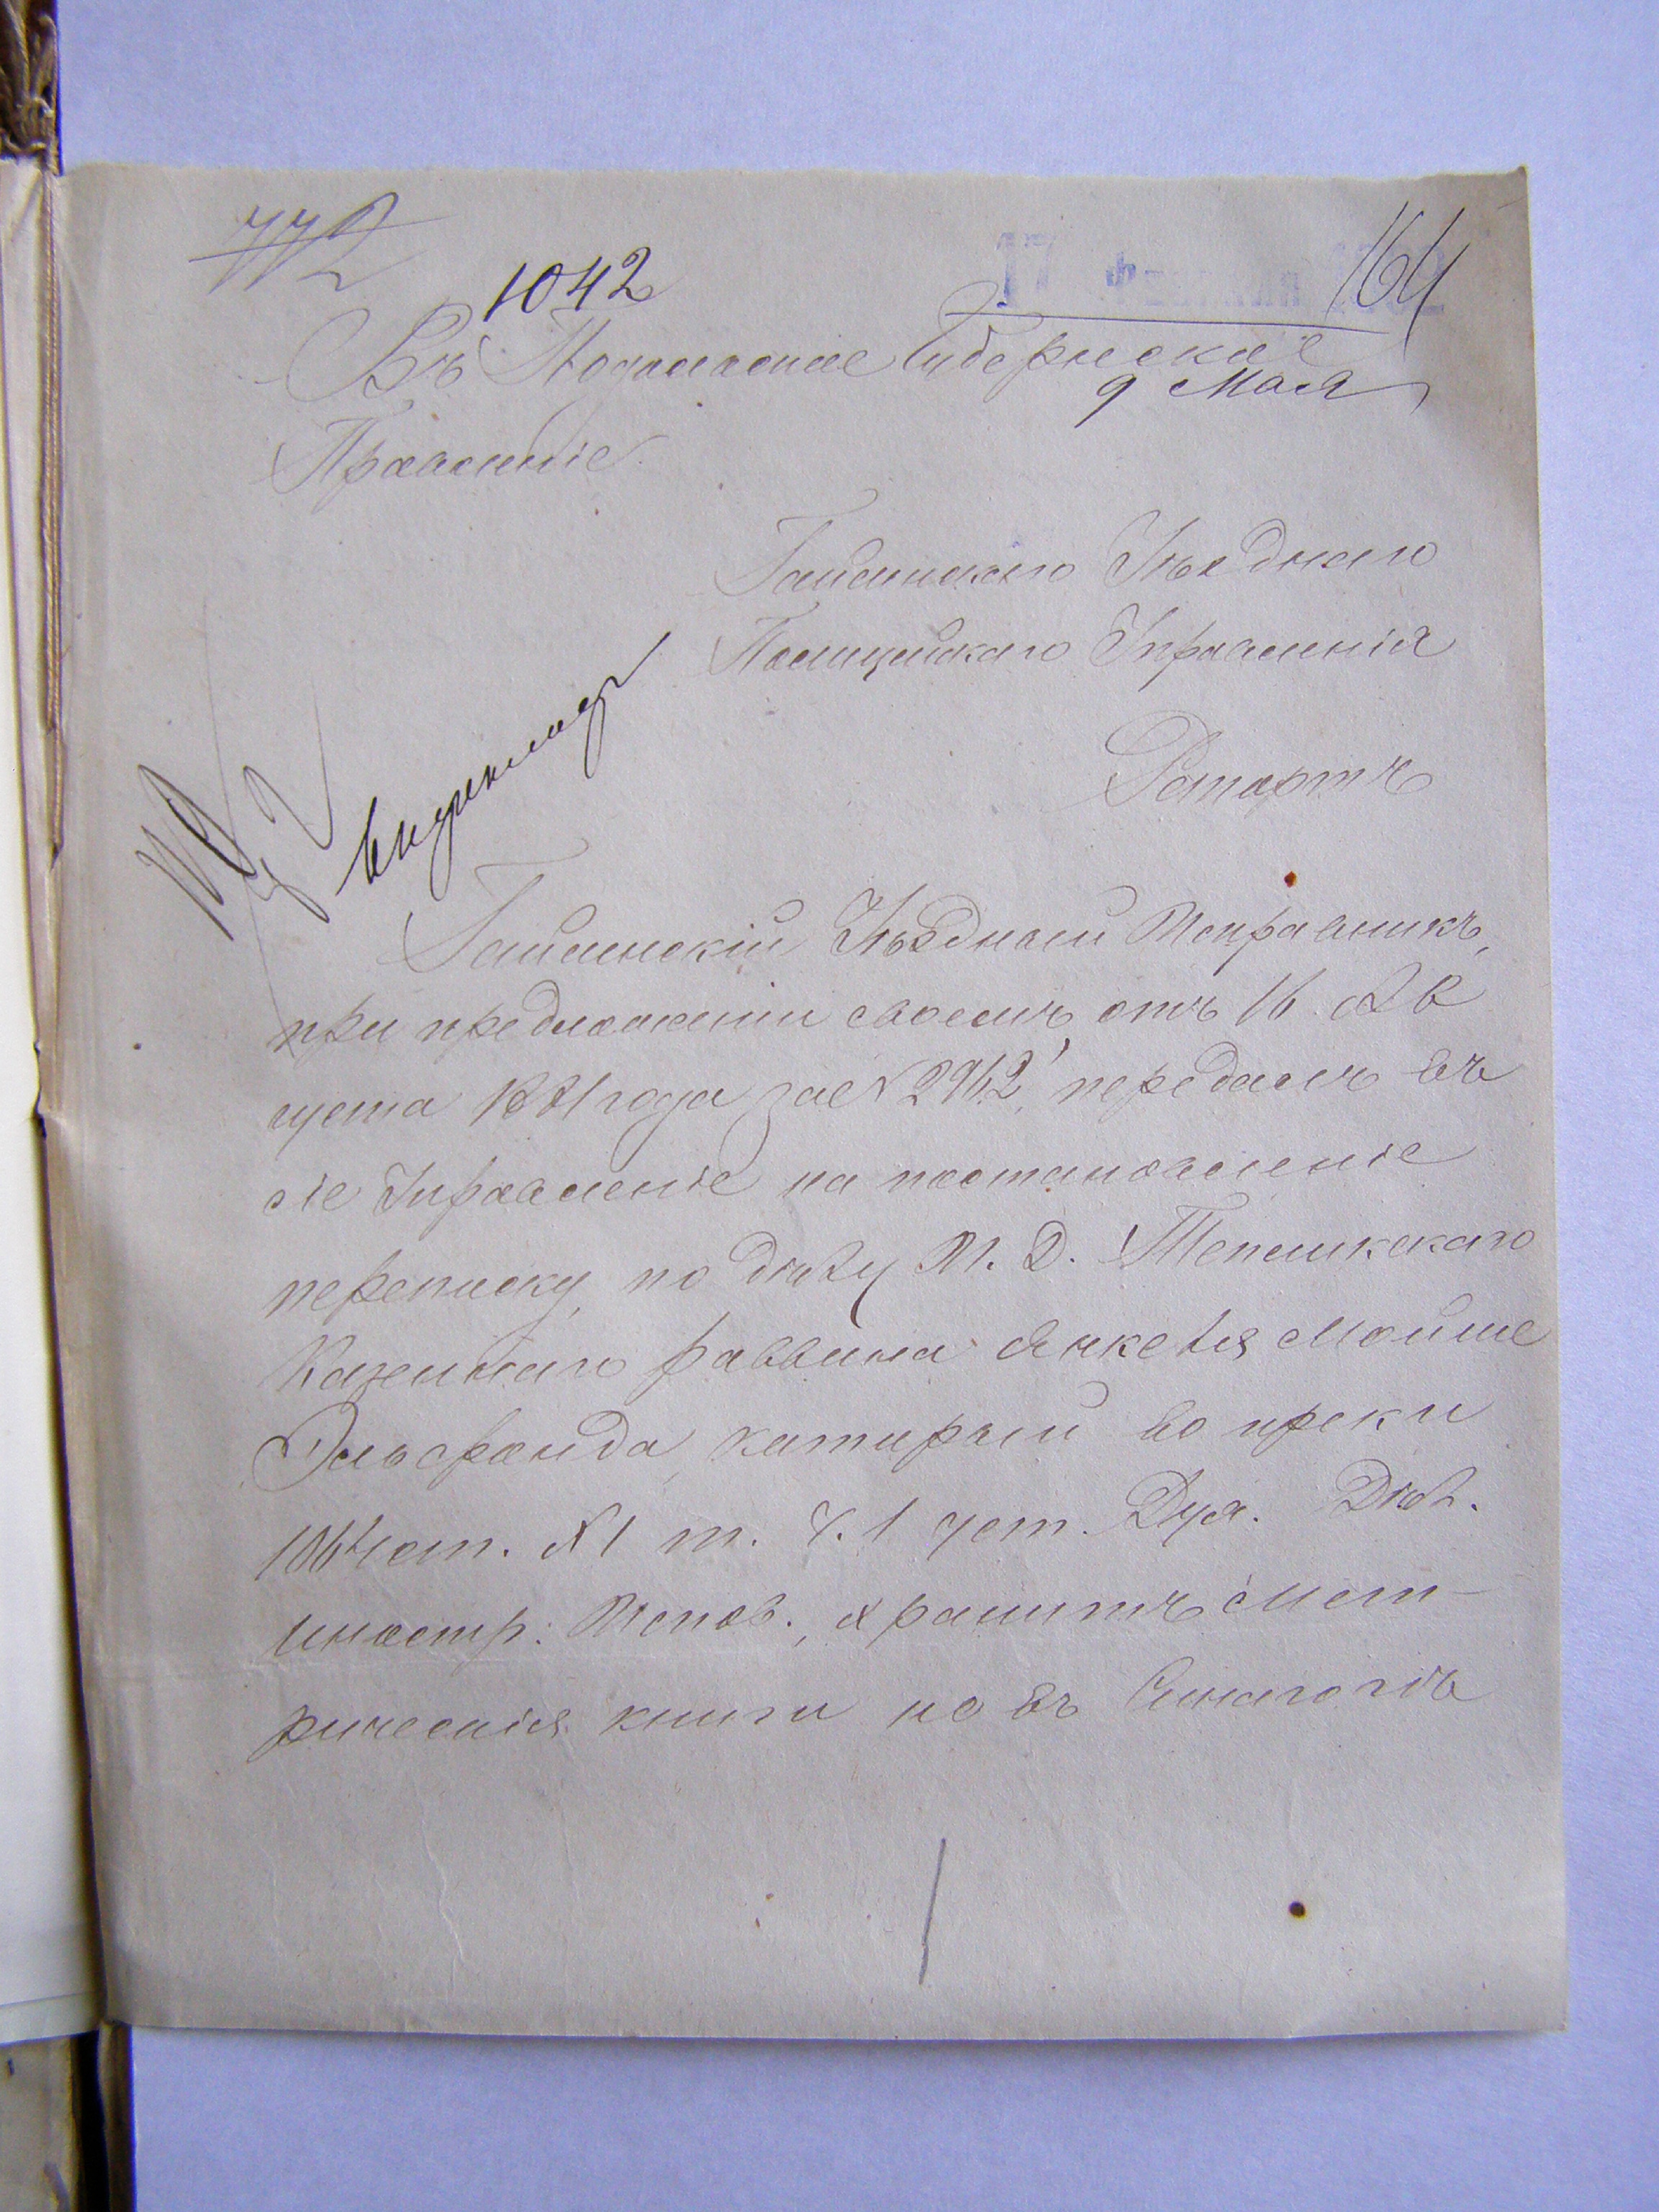 772
1042
164
Въ Подольское Губернское
9 Мая
Правленіе
Гайсинскаго Уѣзднаго
Полицейскаго Управленія
Рапортъ
Гайсинскій Уѣздный Исправникъ,
при предложеніи своемъ отъ 16 Ав
густа 1881 года за № 2962, передалъ въ
сіе Управленіе на постановленіе
переписку, по дѣлу М. Д. Тепликскаго
Казеннаго раввина Янкеля Мойше
Эльфанда, который во преки
1064 ст. XI т. ч. 1 уст. Дух. Дѣл.
иностр: Испов., хранитъ мет-
рическія книги не въ Синагогѣ